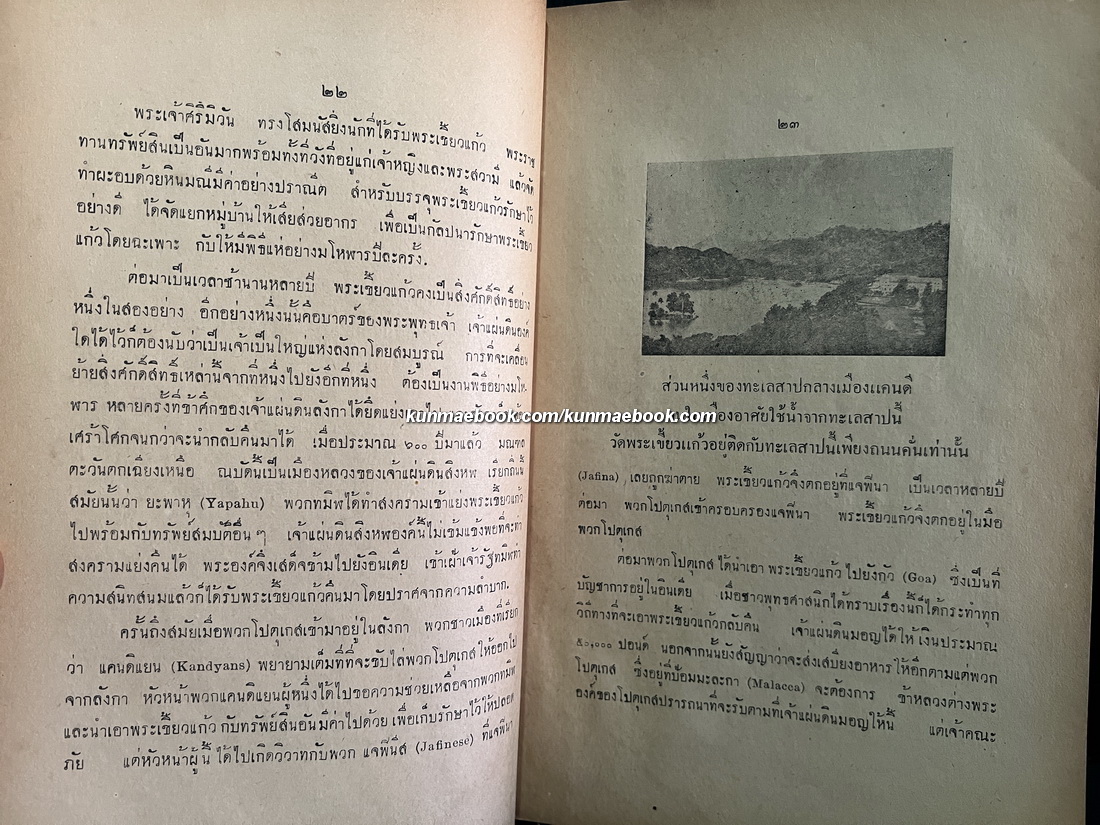 ๒๒
พระเจ้าศิริมิวัน ทรงโสมนัสยิ่งนักที่ได้รับพระเขี้ยวแก้ว พระราช
ทานทรัพย์สินเป็นอันมากพร้อมทั้งที่วังที่อยู่แก่เจ้าหญิงและพระสวามี แล้วจัด
ทำผะอบด้วยหินมณีมีค่าอย่างปราณีต สำหรับบรรจุพระเขี้ยวแก้วรักษาไว้
อย่างดี ได้จัดแยกหมู่บ้านให้เสียส่วยอากร เพื่อเป็นกัลปนารักษาพระเขี้ยว
แก้วโดยฉะเพาะ กับให้มีพิธีแห่อย่างมโหฬารปีละครั้ง.
ต่อมาเป็นเวลาช้านานหลายปี พระเขี้ยวแก้วคงเป็นสิ่งศักดิ์สิทธิ์อย่าง
หนึ่งในสองอย่าง อีกอย่างหนึ่งนั้นคือบาตร์ของพระพุทธเจ้า เจ้าแผ่นดินองค์
ใดได้ไว้ก็ต้องนับว่าเป็นเจ้าเป็นใหญ่แห่งลังกาโดยสมบูรณ์ การที่จะเคลื่อน
ย้ายสิ่งศักดิ์สิทธิ์เหล่านี้จากที่หนึ่งไปยังอีกที่หนึ่ง ต้องเป็นงานพิธีอย่างมโห-
ฬาร หลายครั้งที่ข้าศึกของเจ้าแผ่นดินลังกาได้ยึดแย่ง
เศร้าโศกจนกว่าจะนำกลับคืนมาได้ เมื่อประมาณ ๖๐๐ ปีมาแล้ว มณฑล
ตะวันตกเฉียงเหนือ ณบัดนี้เป็นเมืองหลวงของเจ้าแผ่นดินสิงหฬ เรียกถิ่นนี้
สมัยนั้นว่า ยะพาหุ (Yapahu) พวกทมิฬได้ทำสงครามเข้าแย่งพระเขี้ยวแก้ว
ไปพร้อมกับทรัพย์สมบัติอื่น ๆ เจ้าแผ่นดินสิงหฬองค์นี้ไม่เข้มแข็งพอที่จะทำ
สงครามแย่งคืนได้ พระองค์จึงเสด็จข้ามไปยังอินเดีย เข้าเฝ้าเจ้ารัฐทมิฬทำ
ความสนิทสนมแล้วก็ได้รับพระเขี้ยวแก้วคืนมาโดยปราศจากความลำบาก.
ครั้นถึงสมัยเมื่อพวกโปตุเกสเข้ามาอยู่ในลังกา พวกชาวเมืองที่เรียก
ว่า แคนดิแยน (Kandyans) พยายามเต็มที่ที่จะขับไล่พวกโปตุเกสให้ออกไป
จากลังกา หัวหน้าพวกแคนดิแยนผู้หนึ่งได้ไปขอความช่วยเหลือจากพวกทมิฬ
และนำเอาพระเขี้ยวแก้ว กับทรัพย์สินอันมีค่าไปด้วย เพื่อเก็บรักษาไว้ให้ปลอด
ภัย แต่หัวหน้าผู้นี้ ได้ไปเกิดวิวาทกับพวก แจฟีนีส (Jafinese) ที่แจฟีนา
๒๓
ส่วนหนึ่งของทะเลสาปกลางเมืองแคนดี
เมืองอาศัยใช้น้ำจากทะเลสาปนี้
วัดพระเขี้ยวแก้วอยู่ติดกับทะเลสาปนี้เพียงถนนคั่นเท่านั้น
(Jafina) เลยถูกฆ่าตาย พระเขี้ยวแก้วจึงตกอยู่ที่แจฟีนา เป็นเวลาหลายปี
ต่อมา พวกโปตุเกสเข้าครอบครองแจฟีนา พระเขี้ยวแก้วจึงตกอยู่ในมือ
พวกโปตุเกส
ต่อมาพวกโปตุเกส ได้นำเอา พระเขี้ยวแก้ว ไปยังกัว (Goa) ซึ่งเป็นที่
บัญชาการอยู่ในอินเดีย เมื่อชาวพุทธศาสนิกได้ทราบเรื่องนี้ก็ได้กระทำทุก
วิถีทางที่จะเอาพระเขี้ยวแก้วกลับคืน เจ้าแผ่นดินมอญได้ให้เงินประมาณ
๕๐,๐๐๐ ปอนด์ นอกจากนั้นยังสัญญาว่าจะส่งเสบียงอาหารให้อีกตามแต่พวก
โปตุเกส ซึ่งอยู่ที่ป้อมมะละกา (Malacca) จะต้องการ ข้าหลวงต่างพระ
องค์ของโปตุเกสปรารถนาที่จะรับตามที่เจ้าแผ่นดินมอญให้นี้ แต่เจ้าคณะ
kunmaebook.com/kunmaebook.com